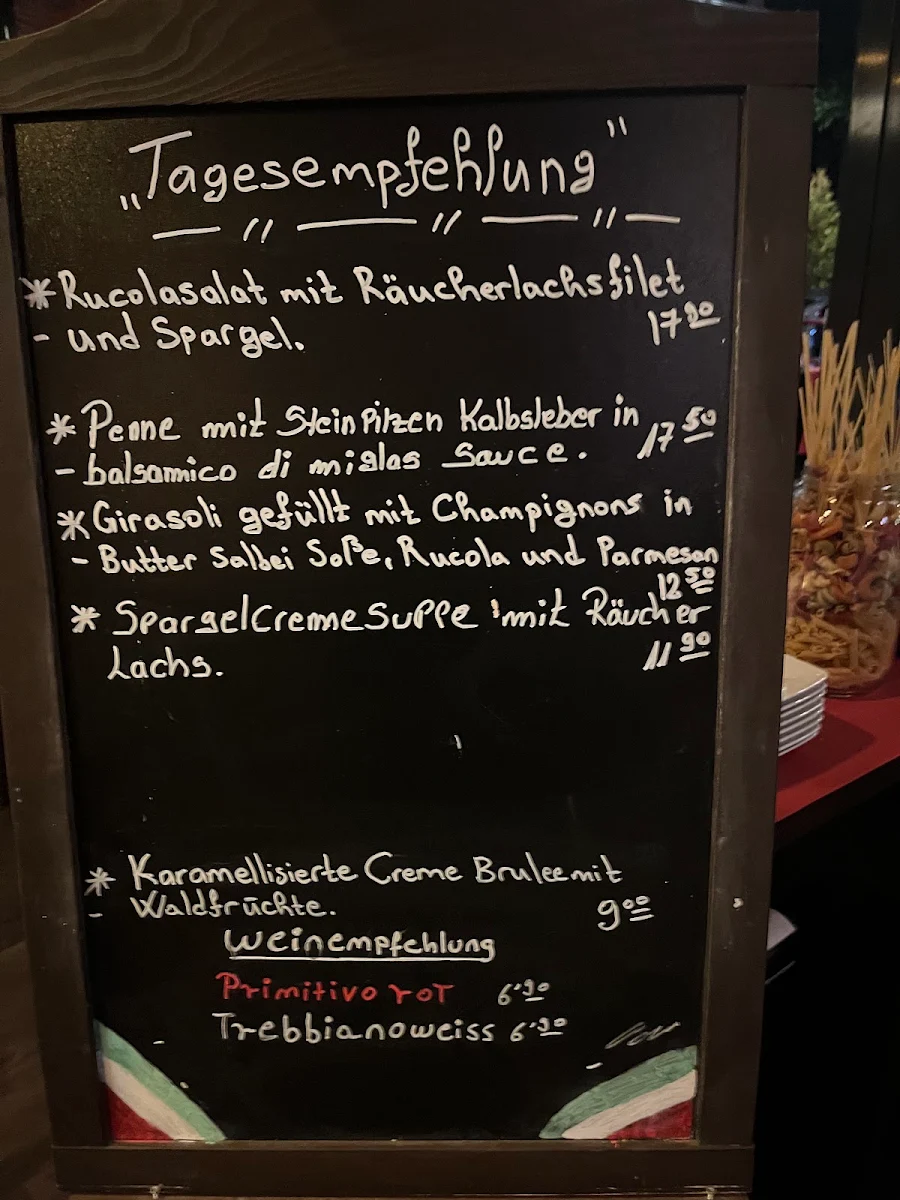 „Tagesempfehlung"
* Rucolasalat mit Räucherlachsfilet
- und Spargel. 17 90
* Penne mit SteinPilzen Kalbsleber in
- balsamico di miglas Sauce. 17 50
* Girasoli gefüllt mit Champignons in
- Butter Salbei Soße, Rucola und Parmesan
12 50
* SpargelCremeSuppe mit Räucher
Lachs. 11 90
* Karamellisierte Creme Brulee mit
- Waldfrüchte. 9 00
Weinempfehlung
Primitivo rot 6'90
Trebbiano weiss 6'90